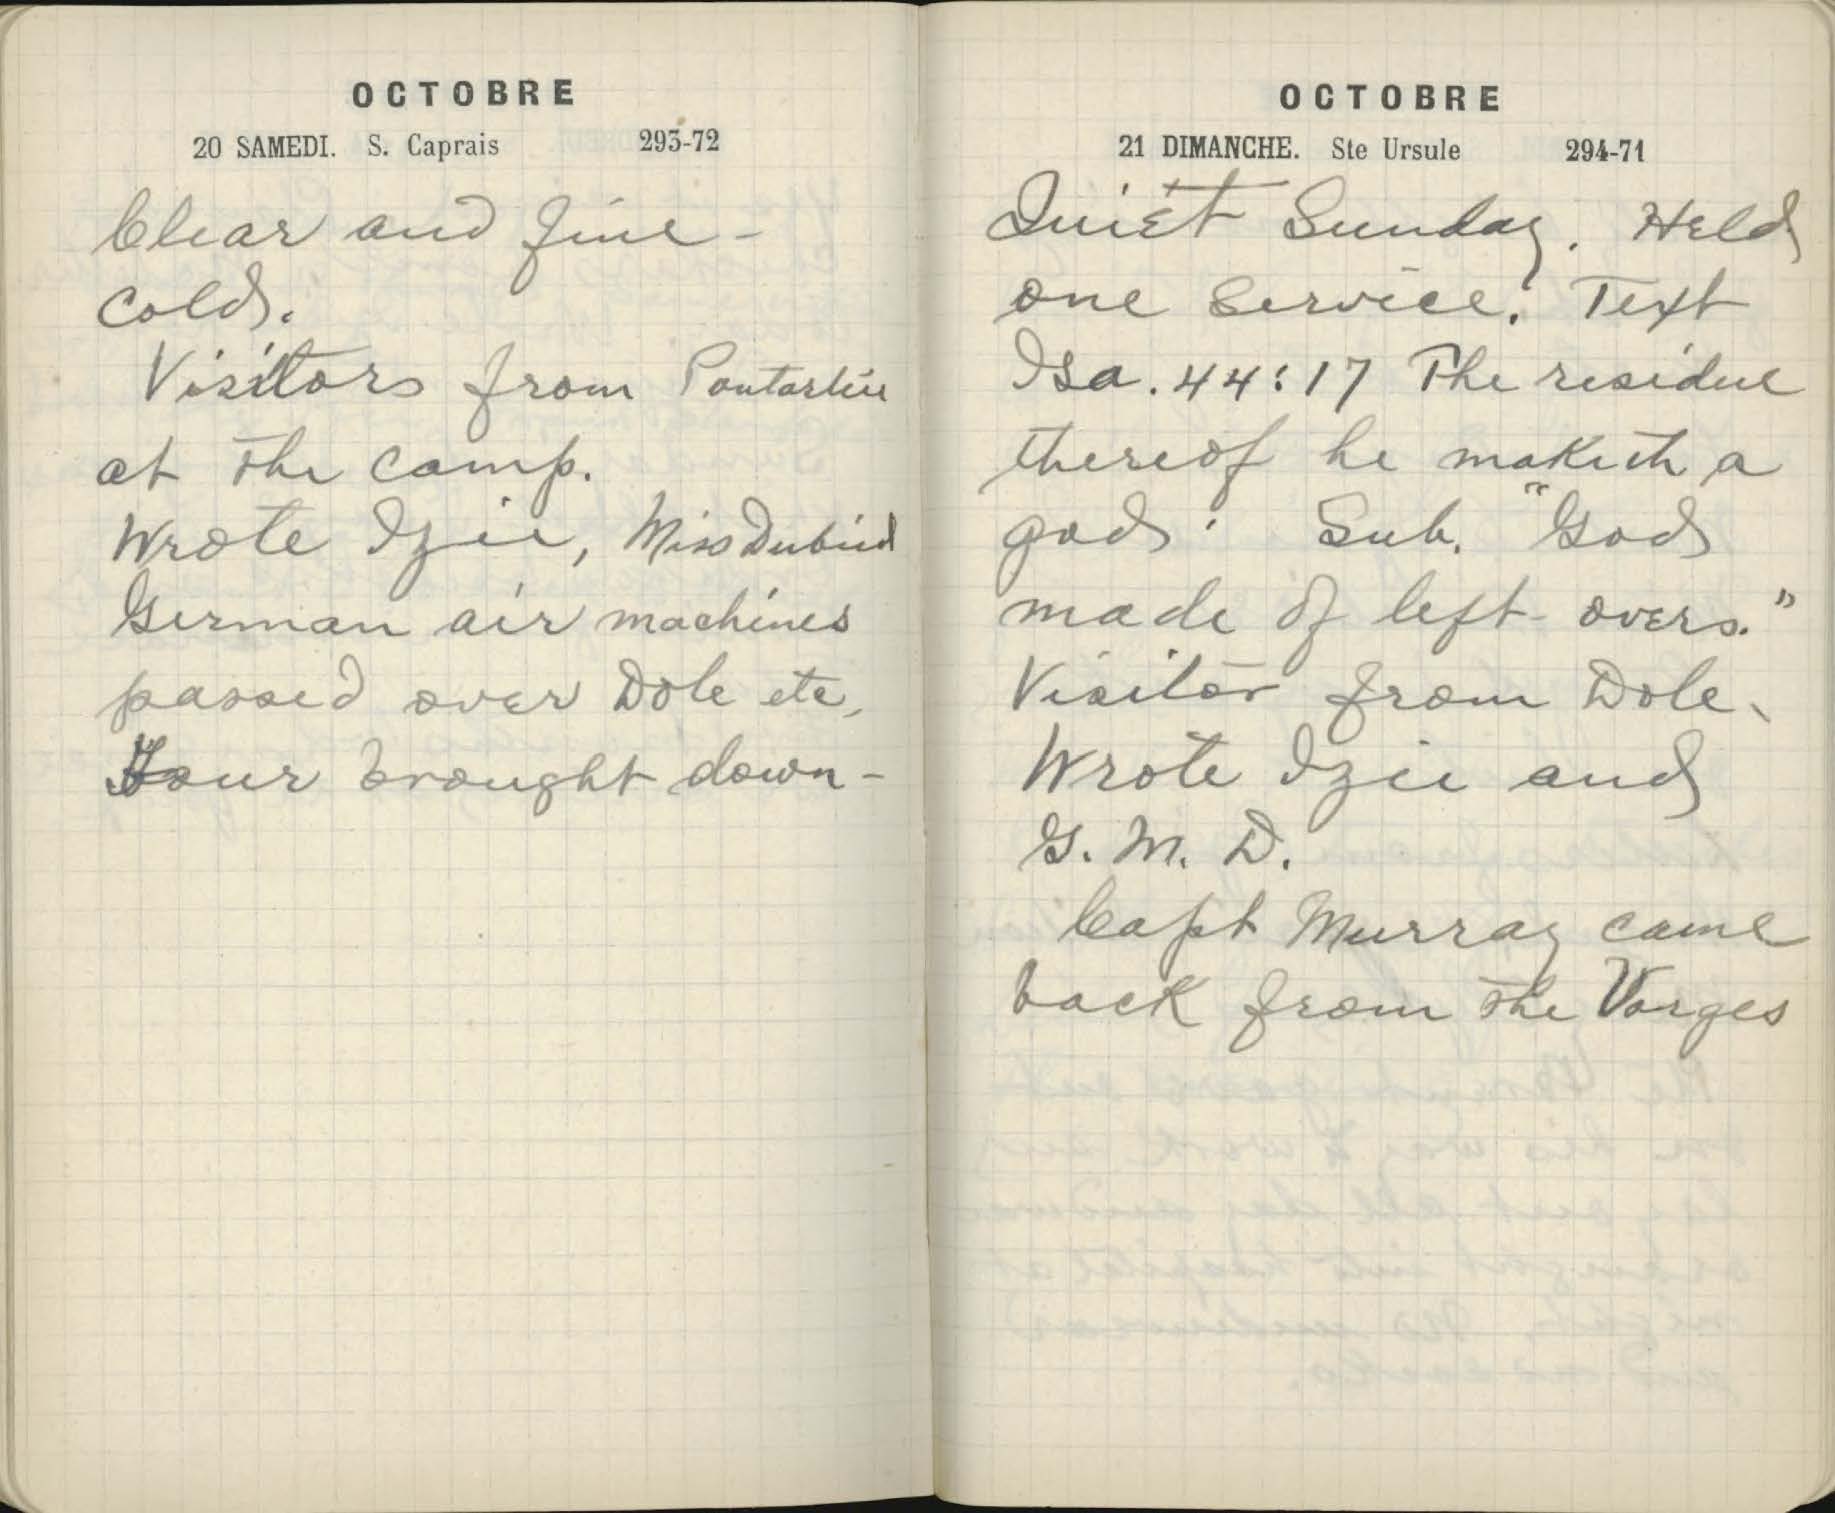 OCTOBRE
20 SAMEDI. S. Caprais 293-72
Clear and fine -
cold.
Visitors from Pontarlier
at the camp.
Wrote Izie, Miss Dubied
German air machines
passed over Dole etc,
Four brought down -
OCTOBRE
21 DIMANCHE. Ste Ursule 294-71
Quiet Sunday. Held
one service. Text
Isa. 44:17 The residue
thereof he maketh a
god. Sub. "Gods
made of left-overs."
Visitor from Dole.
Wrote Izie and
G. M. D.
Capt Murray came
back from the Vorges